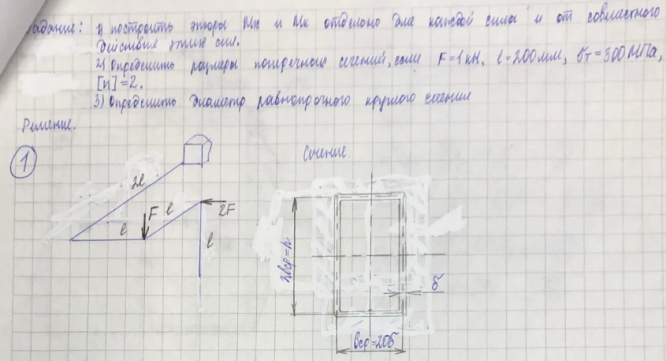 Задание: 1) построить эпюры Mи и Mк отдельно для каждой силы и от совместного
действия этих сил.
2) Определить размеры поперечных сечений, если F=1кН, l=200мм, σт=300МПа,
[n]=2.
3) Определить диаметр равнопрочного круглого сечения
Решение.
1
Сечение
2l
F
l
2F
l
l
2bср=h
δ
bср=20δ